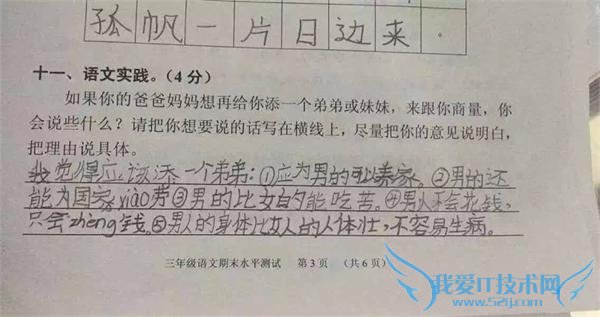 孤帆一片日边来。
十一、语文实践。(4分)
如果你的爸爸妈妈想再给你添一个弟弟或妹妹，来跟你商量，你
会说些什么？请把你想要说的话写在横线上，尽量把你的意见说明白，
把理由说具体。
我觉得应该添一个弟弟：①应为男的可以养家。②男的还
能为国家xiào劳③男的比女的能吃苦。④男人不会花钱，
只会zhèng钱。⑤男人的身体比女人的人体壮，不容易生病。
三年级语文期末水平测试 第3页 (共6页)
我爱IT技术网
www.52ij.com